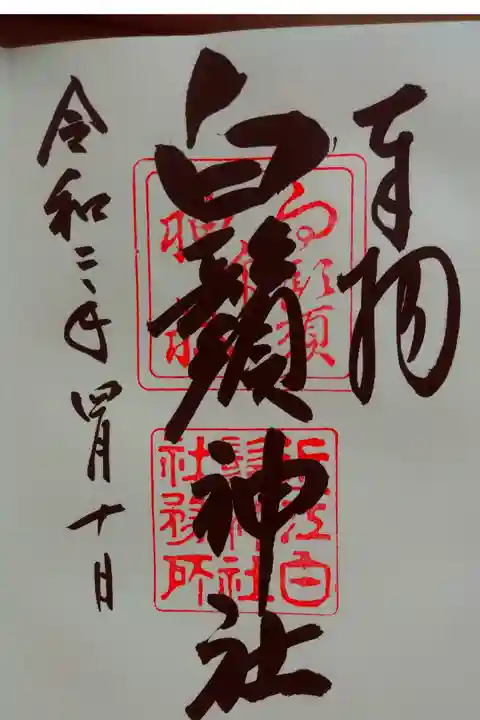 奉拝
白鬚神社
令和二年四月十日
近江白
鬚神社
社務所